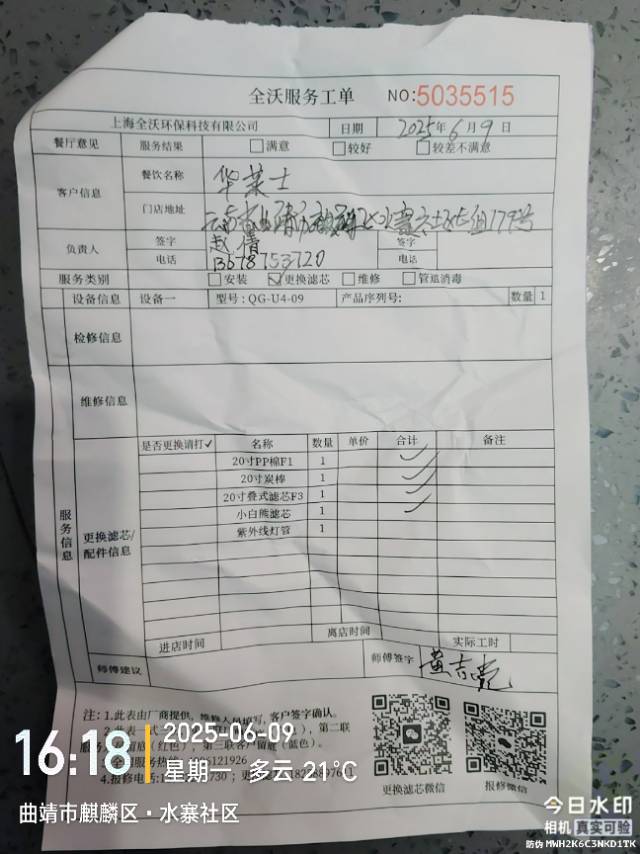 全沃服务工单 NO:5035515
上海全沃环保科技有限公司 日期 2025年6月9日
餐厅意见 服务结果 满意 较好 较差不满意
客户信息 餐饮名称 华莱士
门店地址 179号
负责人 签字 赵倩 签字
电话 电话
服务类别 安装 更换滤芯 维修 管道消毒
设备信息 设备一 型号: QG-U4-09 产品序列号: 数量 1
检修信息
维修信息
服务信息
更换滤芯/配件信息
是否更换请打✓ 名称 数量 单价 合计 备注
20寸PP棉F1 1 ✓
20寸炭棒 1 ✓
20寸叠式滤芯F3 1 ✓
小白熊滤芯 1 ✓
紫外线灯管 1
进店时间 离店时间 实际工时
师傅建议 师傅签字
注: 1.此表由厂商提供, 维修人员填写, 客户签字确认。
第二联
(红色), 第三联客户留底(蓝色)。
4.报修电话:
更换滤芯微信 报修微信
16:18
2025-06-09
星期一 多云 21°C
曲靖市麒麟区·水寨社区
今日水印
相机 真实可验
防伪 MWH2K6C3NKD1TK